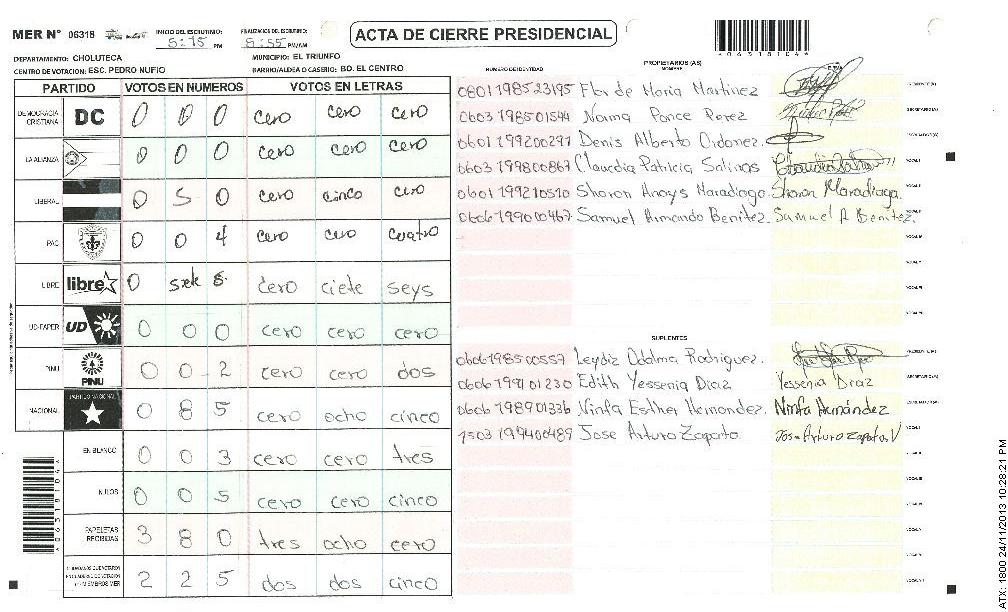 MER N° 06318
INICIO DEL ESCRUTINIO: 5:15 PM
FINALIZACION DEL ESCRUTINIO: 5:55 PM/AM
ACTA DE CIERRE PRESIDENCIAL
*06318104*
DEPARTAMENTO: CHOLUTECA
MUNICIPIO: EL TRIUNFO
CENTRO DE VOTACION: ESC. PEDRO NUFIO
BARRIO/ALDEA O CASERIO: BO. EL CENTRO
PARTIDO VOTOS EN NUMEROS VOTOS EN LETRAS
DEMOCRACIA CRISTIANA DC 0 0 0 cero cero cero
LA ALIANZA 0 0 0 cero cero cero
LIBERAL 0 5 0 cero cinco cero
PAC 0 0 4 cero cero cuatro
LIBRE libre 0 siete 6 cero ciete seys
UD-FAPER UD 0 0 0 cero cero cero
PINU PINU 0 0 2 cero cero dos
NACIONAL PARTIDO NACIONAL 0 8 5 cero ocho cinco
EN BLANCO 0 0 3 cero cero tres
NULOS 0 0 5 cero cero cinco
PAPELETAS RECIBIDAS 3 8 0 tres ocho cero
2 2 5 dos dos cinco
PROPIETARIOS (AS)
NUMERO DE IDENTIDAD NOMBRE FIRMA
0801198523195 Flor de Maria Martinez PRESIDENTE(A)
0603198501544 Norma Ponce Perez SECRETARIO(A)
0601199200297 Denis Alberto Ordonez. ESCRUTADOR(A)
0603199800867 Claudia Patricia Salinas VOCAL I
0601199210510 Sharon Anays Maradiaga. Sharon Maradiaga. VOCAL II
0606199000467 Samuel Armando Benitez. Samuel A Benitez.
SUPLENTES
0606198500557 Leydiz Odalma Rodriguez. PRESIDENTE(A)
0606199101230 Edith Yessenia Diaz Yessenia Diaz SECRETARIO(A)
0606198901336 Ninfa Esther Hernandez. Ninfa Hernández ESCRUTADOR(A)
1503199400489 Jose Arturo Zapata Jose Arturo Zapata V VOCAL I
*06318104*
ATX: 1800 24/11/2013 10:28:21 PM